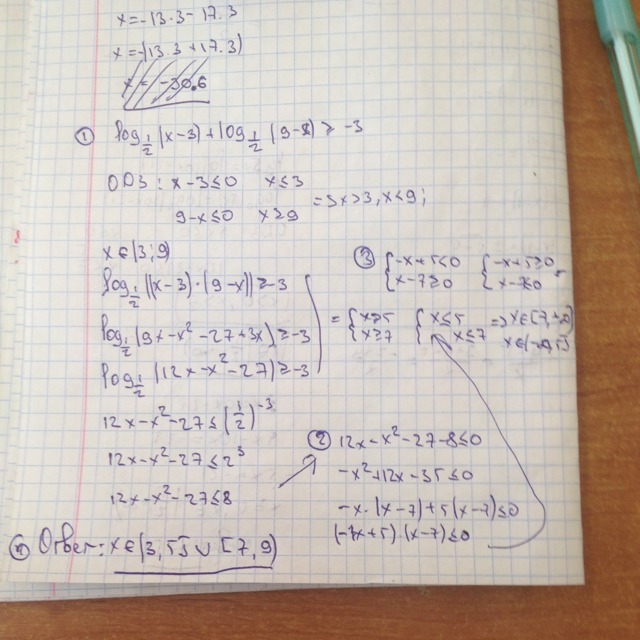 x=-13.3-17.3
x=-(13.3+17.3)
x=-30.6
① log½(x-3)+log½(9-x)≥-3
ОДЗ: x-3≤0 x≤3
9-x≤0 x≥9
=>x>3, x<9;
x∈(3;9)
log½((x-3)·(9-x))≥-3
log½(9x-x²-27+3x)≥-3
log½(12x-x²-27)≥-3
12x-x²-27≤(½)⁻³
12x-x²-27≤2³
12x-x²-27≤8
② 12x-x²-27-8≤0
-x²+12x-35≤0
-x·(x-7)+5(x-7)≤0
(-x+5)·(x-7)≤0
③ {-x+5≤0 {-x+5≥0
{x-7≥0 {x-7≤0
={x≥5 {x≤5 =>x∈[7,+∞)
{x≥7 {x≤7 x∈(-∞,5]
④ Ответ: x∈(3,5]∪[7,9)